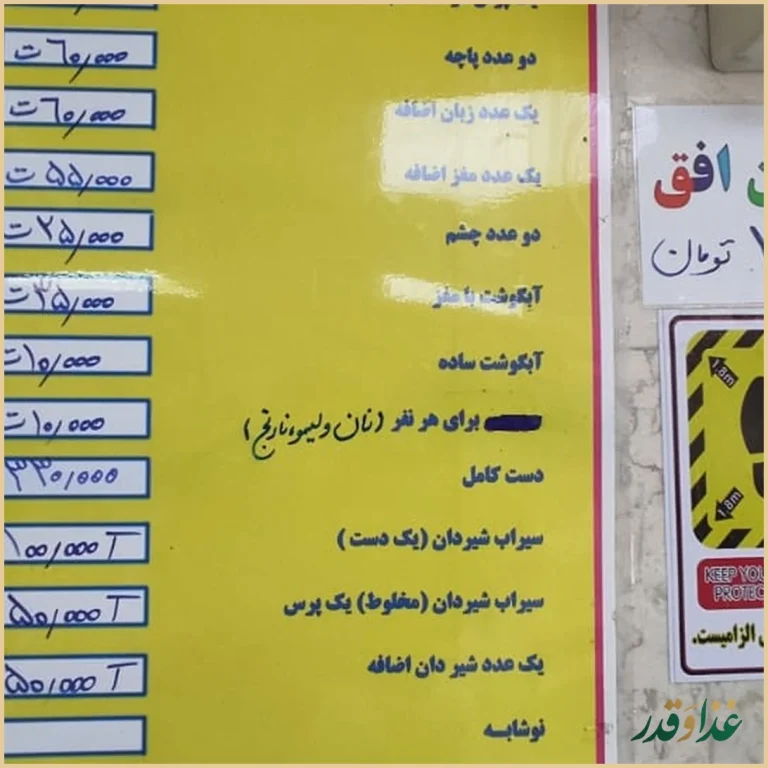 دو عدد پاچه ۶۰٫۰۰۰ ت
یک عدد زبان اضافه ۶۰٫۰۰۰ ت
یک عدد مغز اضافه ۵۵٫۰۰۰ ت
دو عدد چشم ۲۵٫۰۰۰ ت
آبگوشت با مغز ۳۵٫۰۰۰ ت
آبگوشت ساده ۱۰٫۰۰۰ ت
برای هر نفر (نان ولیمو نارنج) ۱۰٫۰۰۰ ت
دست کامل ۳۳۰٫۰۰۰
سیراب شیردان (یک دست) ۱۰۰٫۰۰۰ T
سیراب شیردان (مخلوط) یک پرس ۵۰٫۰۰۰ T
یک عدد شیر دان اضافه ۵۰٫۰۰۰ T
نوشابه
افق
تومان
1.8m
1.8m
KEEP YOU
PROTEC
الزامیست.
غذا و قدر